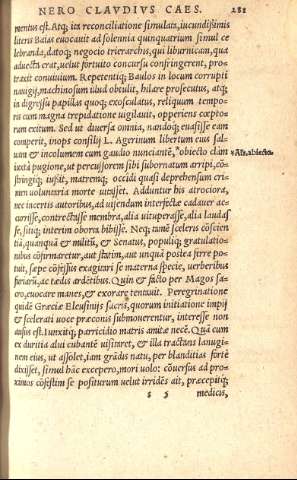 NERO CLAVDIVS CAES. 281
mentus est. Atq; ita reconciliatione simulata, iucundissimis
literis Baias euocauit ad sollennia quinquatruum simul ce
lebranda, datoq; negocio trierarchis, qui liburnicam, qua
aduecta erat, uelut fortuito concursu confringerent, pro=
traxit conuiuium. Repetentiq; Baulos in locum corrupti
nauigij, machinosum illud obtulit, hilare prosecutus, atq;
in digressu papillas quoq; exosculatus, reliquum tempo=
ris cum magna trepidatione uigilauit, opperiens cœpto=
rum exitum. Sed ut diuersa omnia, nandoq; euasisse eam
comperit, inops consilij L. Agerinum libertum eius sal=
uam & incolumem cum gaudio nunciantē, *obiecto clàm
*Als, abiecto.
iuxtà pugione, ut percussorem sibi subornatum arripi, cō=
stringiq; iussit, matremq; occidi quasi deprehensum cri=
men uoluntaria morte uitasset. Adduntur his atrociora,
nec incertis autoribus, ad uisendum interfectæ cadauer ac=
currisse, contrectasse membra, alia uituperasse, alia laudas=
se, sitiq; interim oborta bibisse. Neq; tamē sceleris cōscien
tiā, quanquā & militū, & Senatus, populiq; gratulatio=
nibus cōfirmaretur, aut statim, aut unquā postea ferre po=
tuit, sæpe cōfessus exagitari se materna specie, uerberibus
furiarū, ac tædis ardētibus. Quin & facto per Magos sa=
cro, euocare manes, & exorare tentauit. Peregrinatione
quidē Græciæ Eleusinijs sacris, quorum initiatione impij
& scelerati uoce præconis submouerentur, interesse non
ausus est. Iunxit parricidio matris amitæ necē. Quā cum
ex duritia alui cubantē uisitaret, & illa tractans lanugi=
nem eius, ut assolet, iam grādis natu, per blanditias fortè
dixisset, simul hāc excepero, mori uolo: cōuersus ad pro=
ximos cōfestim se positurum uelut irridēs ait, præcepitq;
s 5 medicis,